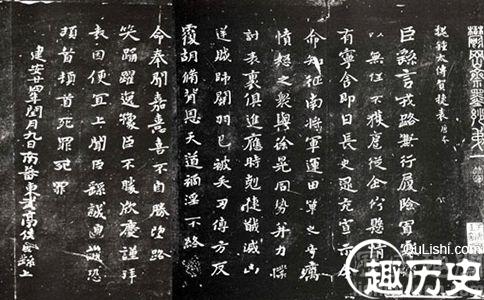 魏鍾太傅賀捷表 唐本
臣繇言戎路兼行履險冒寒
以無任不獲扈從企佇懸情
有寧舍即日長史逮充宣示令
命知征南將軍運田單之奇厲
憤怒之衆與徐晃同勢并力撲
討表裏俱進應時剋捷馘滅凶
逆賊帥關羽已被矢刃傅方反
覆胡脩背恩天道禍淫不終
命奉聞嘉憙喜不自勝望路
笑踊躍逸豫臣不勝欣慶謹拜
表因便宜上聞臣繇誠惶誠恐
頓首頓首死罪死罪
建安廿四年閏月九日南蕃東武亭侯臣繇上
QuLishi.com
趣历史